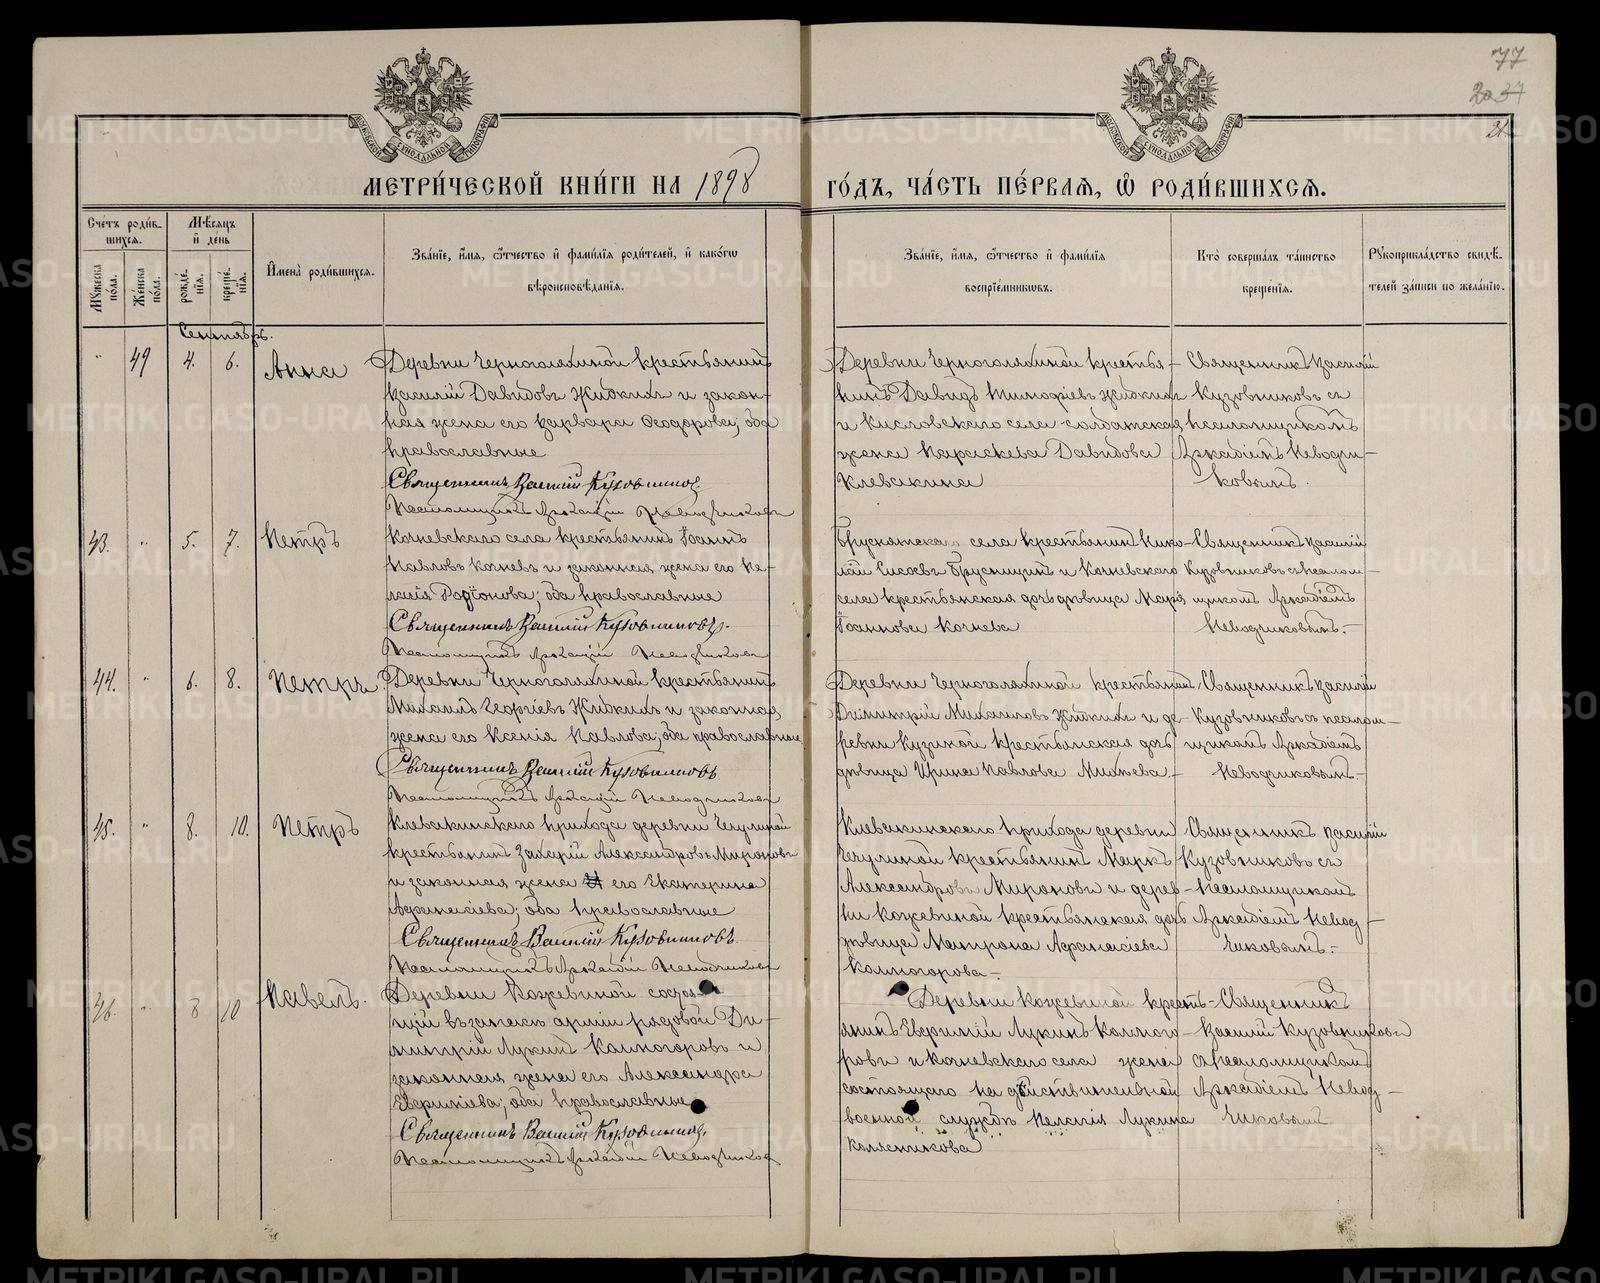 77
2037
21
МЕТРИ́ЧЕСКОЙ КНИ́ГИ НА 1898 ГО́ДЪ, ЧА́СТЬ ПЕ́РВАѦ, Ѽ РОДИ́ВШИХСѦ.
Сче́тъ роди́вшихсѧ.
Мѣ́сѧцъ и҆ де́нь
Мꙋ́жеска по́ла.
Же́нска по́ла.
рожде́нїѧ.
креще́нїѧ.
И҆мена̀ роди́вшихсѧ.
Зва́нїе, и҆́мѧ, ѻ҆́тчество и҆ фами́лїѧ роди́телей, и҆ како́гѡ
вѣроисповѣ́данїѧ.
Зва́нїе, и҆́мѧ, ѻ҆́тчество и҆ фами́лїѧ
воспрїе́мникѡвъ.
Кто̀ соверша́лъ та́инство
креще́нїѧ.
Рꙋкоприкла́дство свидѣ́телей за́писи по жела́нїю.
Сентябрь.
" 49 4. 6. Анна
Деревни Черноголяхиной крестьянинъ
Василій Давидовъ Жидкихъ и закон-
ная жена его Варвара Ѳеодорова; оба
православные
Священникъ Василій Кузовниковъ.
Псаломщикъ Аркадій Неводчиковъ
Деревни Черноголяхиной крестья-
нинъ Давидъ Тимофіевъ Жидкихъ
и Кисловскаго села солдатская
жена Параскева Давидова
Клевакина
Священникъ Василій
Кузовниковъ съ
псаломщикомъ
Аркадіемъ Неводчи-
ковымъ.
43. " 5. 7. Петръ
Кочневскаго села крестьянинъ Іоаннъ
Павловъ Кочневъ и законная жена его Пе-
лагія Родіонова; оба православные
Священникъ Василій Кузовниковъ.
Псаломщикъ Аркадій Неводчиковъ
Бруснятскаго села крестьянинъ Нико-
лай Брусницинъ и Кочневскаго
села крестьянская дочь дѣвица Марія
Іоаннова Кочнева
Священникъ Василій
Кузовниковъ съ псалом-
щикомъ Аркадіемъ
Неводчиковымъ.-
44. " 6. 8. Петръ
Деревни Черноголяхиной крестьянинъ
Михаилъ Георгіевъ Жидкихъ и законная
жена его Ксенія Павлова; оба православные
Священникъ Василій Кузовниковъ
Псаломщикъ Аркадій Неводчиковъ
Деревни Черноголяхиной крестьянинъ
Димитрій Михаиловъ Жидкихъ и де-
ревни Кузиной крестьянская дочь
дѣвица Ирина Павлова
Священникъ Василій
Кузовниковъ съ псалом-
щикомъ Аркадіемъ
Неводчиковымъ.-
45. " 8. 10. Петръ
Клевакинскаго прихода деревни Чечулиной
крестьянинъ Захарій Александровъ Мироновъ
и законная жена его Екатерина
Аѳанасіева; оба православные
Священникъ Василій Кузовниковъ
Псаломщикъ Аркадій Неводчиковъ
Клевакинскаго прихода деревни
Чечулиной крестьянинъ Маркъ
Александровъ Мироновъ и дерев-
ни Кожевиной крестьянская дочь
дѣвица Матрона Аѳанасіева
Колногорова.-
Священникъ Василій
Кузовниковъ съ
псаломщикомъ
Аркадіемъ Невод-
чиковымъ.-
46. " 8 10 Павелъ.
Деревни Кожевиной состоя-
щій въ запасѣ арміи рядовой Ди-
митрій Лукинъ Колногоровъ и
законная жена его Александра
оба православные
Священникъ Василій Кузовниковъ.
Псаломщикъ Аркадій Неводчиковъ
Деревни Кожевиной кресть-
янинъ Лукинъ Колного-
ровъ и Кочневскаго села жена
состоящаго на дѣйствительной
военной службѣ Пелагія Лукина
Колясникова
Священникъ
Василій Кузовниковъ
съ псаломщикомъ
Аркадіемъ Невод-
чиковымъ
METRIKI.GASO-URAL.RU